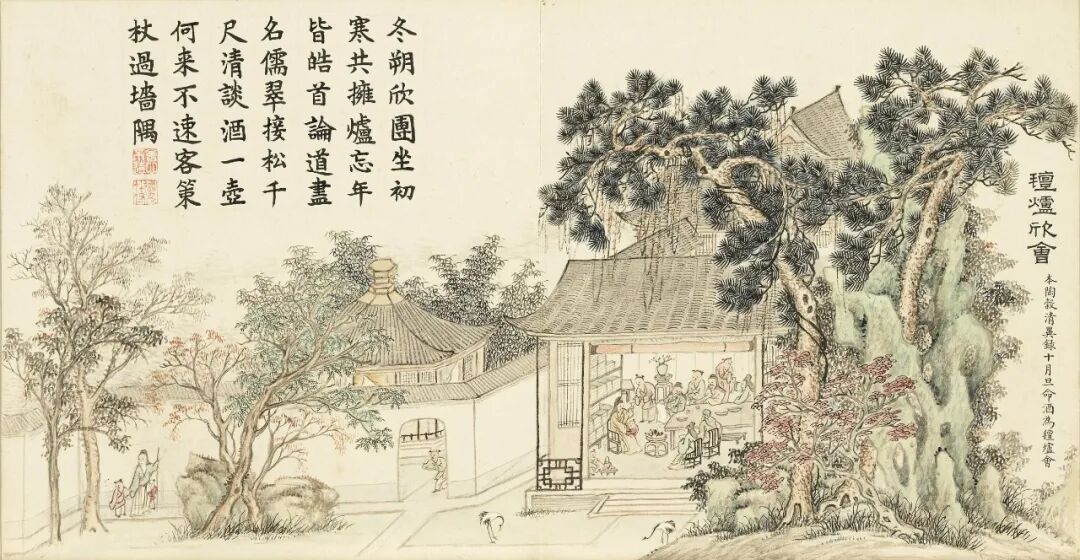 爐欣會
本陶穀清異錄十月旦命酒為爐會
冬朔欣團坐初
寒共擁爐忘年
皆皓首論道盡
名儒翠接松千
尺清談酒一壺
何来不速客策
杖過墻隅